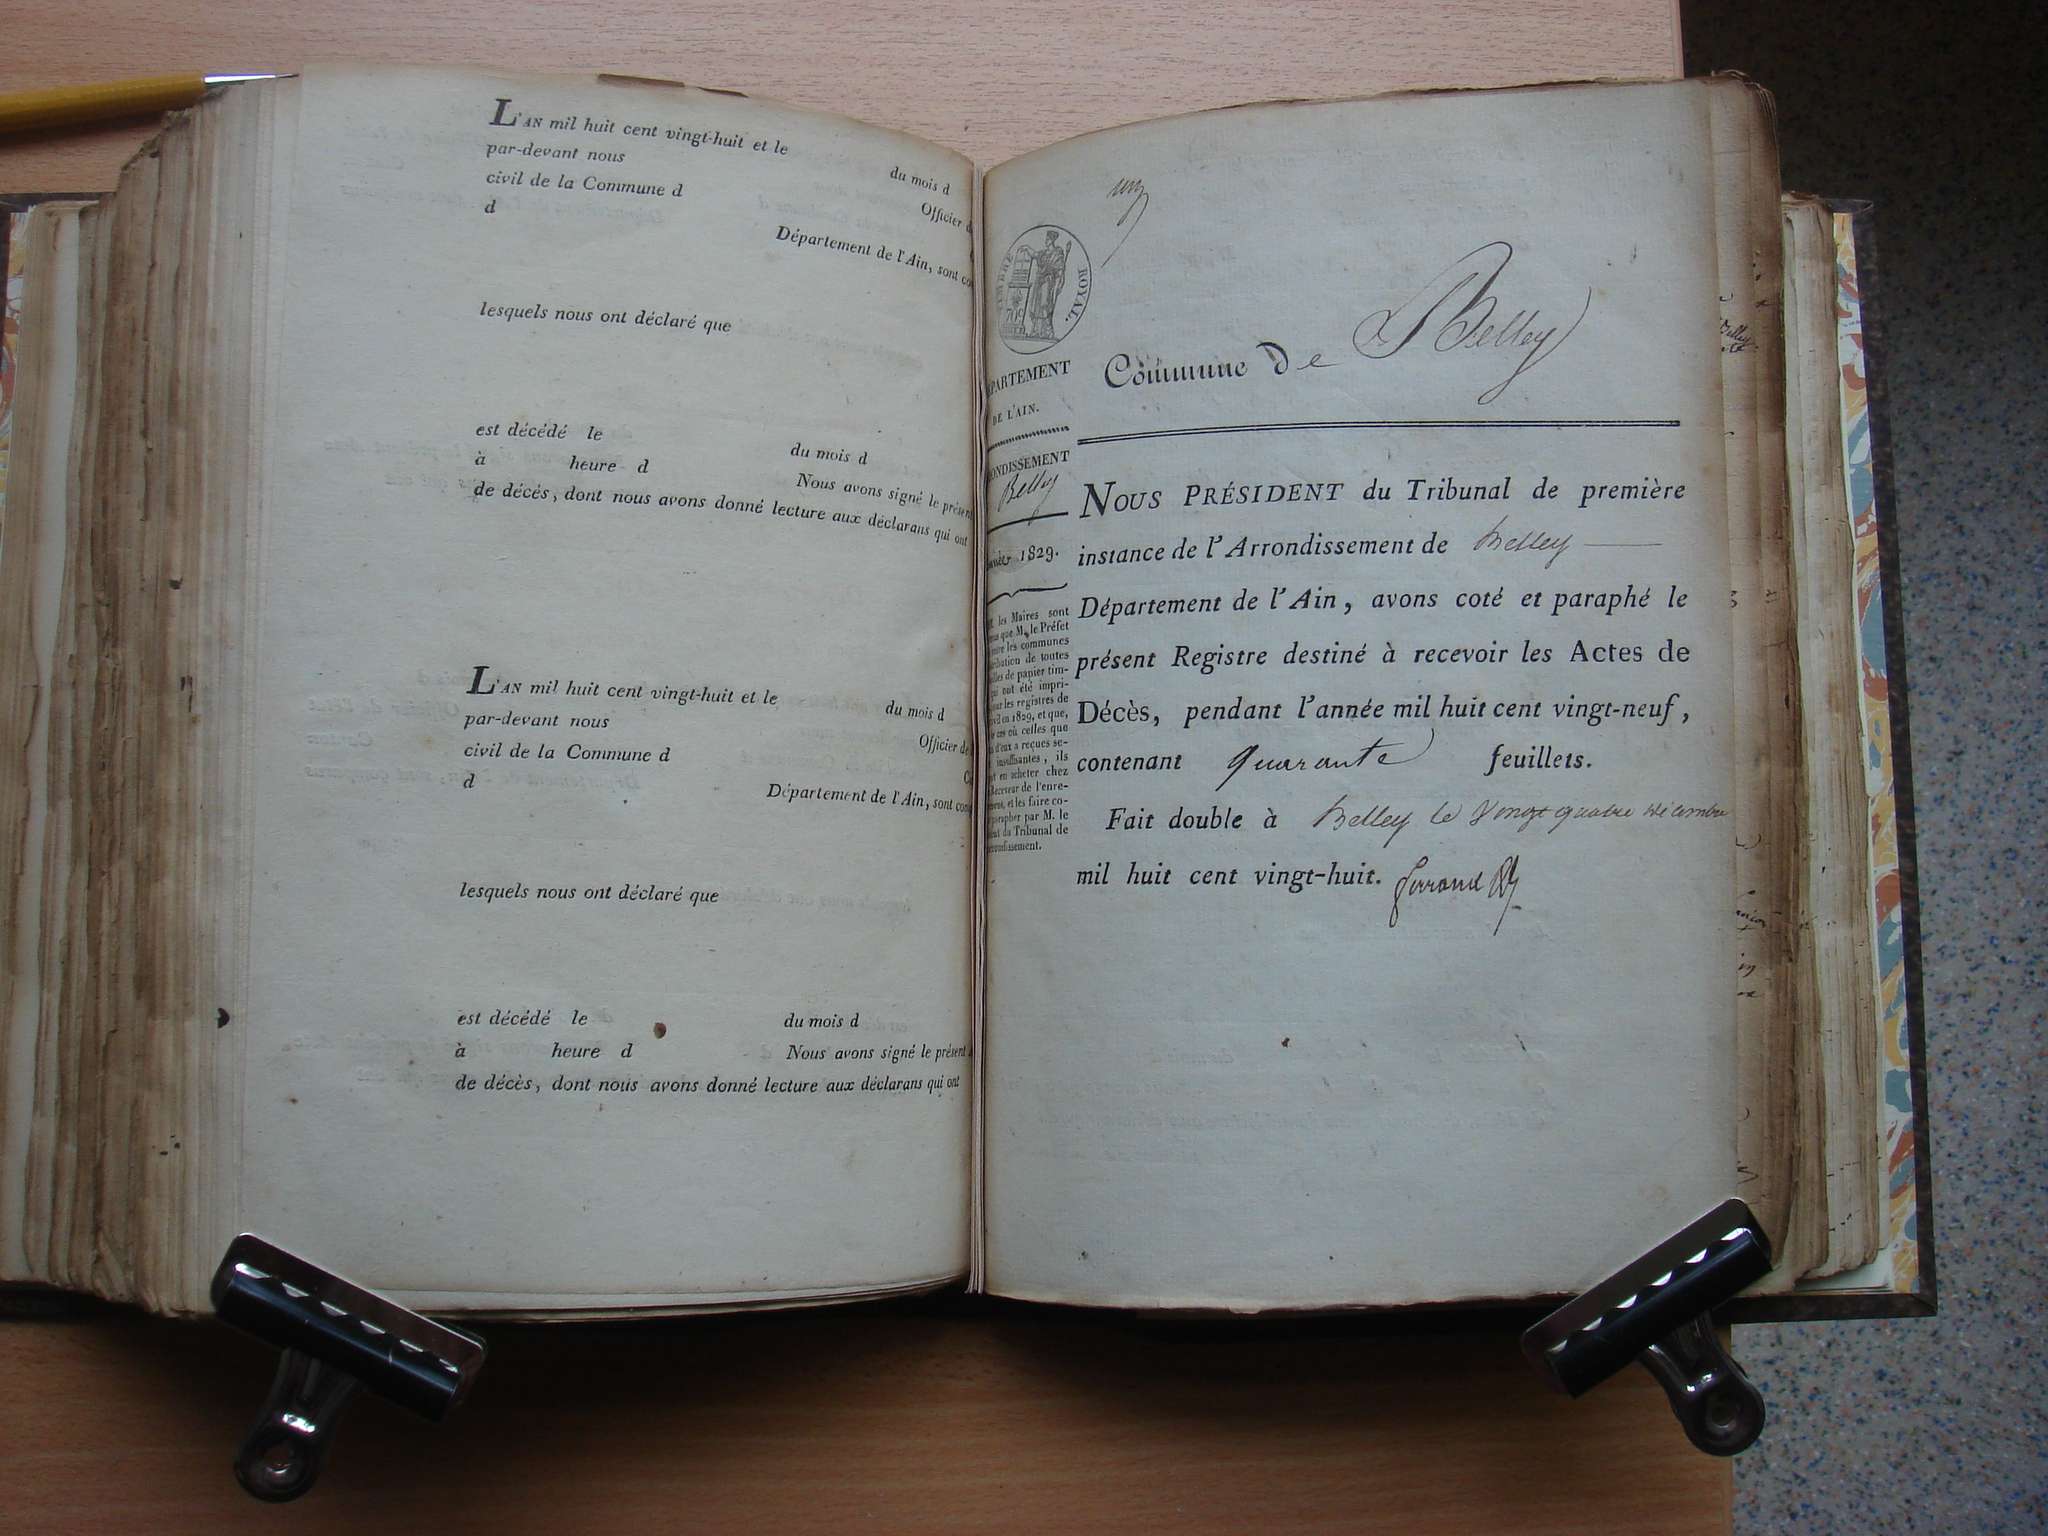 L'AN mil huit cent vingt-huit et le du mois d
par-devant nous Officier d
civil de la Commune d
d Département de l'Ain, sont co
lesquels nous ont déclaré que
est décédé le du mois d
à heure d Nous avons signé le présent
de décès, dont nous avons donné lecture aux déclarans qui ont
L'AN mil huit cent vingt-huit et le du mois d
par-devant nous Officier de
civil de la Commune d C
d Département de l'Ain, sont comp
lesquels nous ont déclaré que
est décédé le du mois d
à heure d Nous avons signé le présent
de décès, dont nous avons donné lecture aux déclarans qui ont
un
TIMBRE ROYAL.
70c
PARTEMENT
DE L'AIN.
ONDISSEMENT
Belley
1829.
les Maires sont
que M. le Préfet
les communes
ribution de toutes
lles de papier tim-
qui ont été impri-
our les registres de
vil en 1829, et que,
e cas où celles que
d'eux a reçues se-
insuffisantes, ils
en acheter chez
Receveur de l'enre-
et les faire co-
parapher par M. le
du Tribunal de
ondissement.
Commune De Belley
NOUS PRÉSIDENT du Tribunal de première
instance de l'Arrondissement de Belley
Département de l'Ain, avons coté et paraphé le
présent Registre destiné à recevoir les Actes de
Décès, pendant l'année mil huit cent vingt-neuf,
contenant quarante feuillets.
Fait double à Belley le Vingt quatre décembre
mil huit cent vingt-huit.